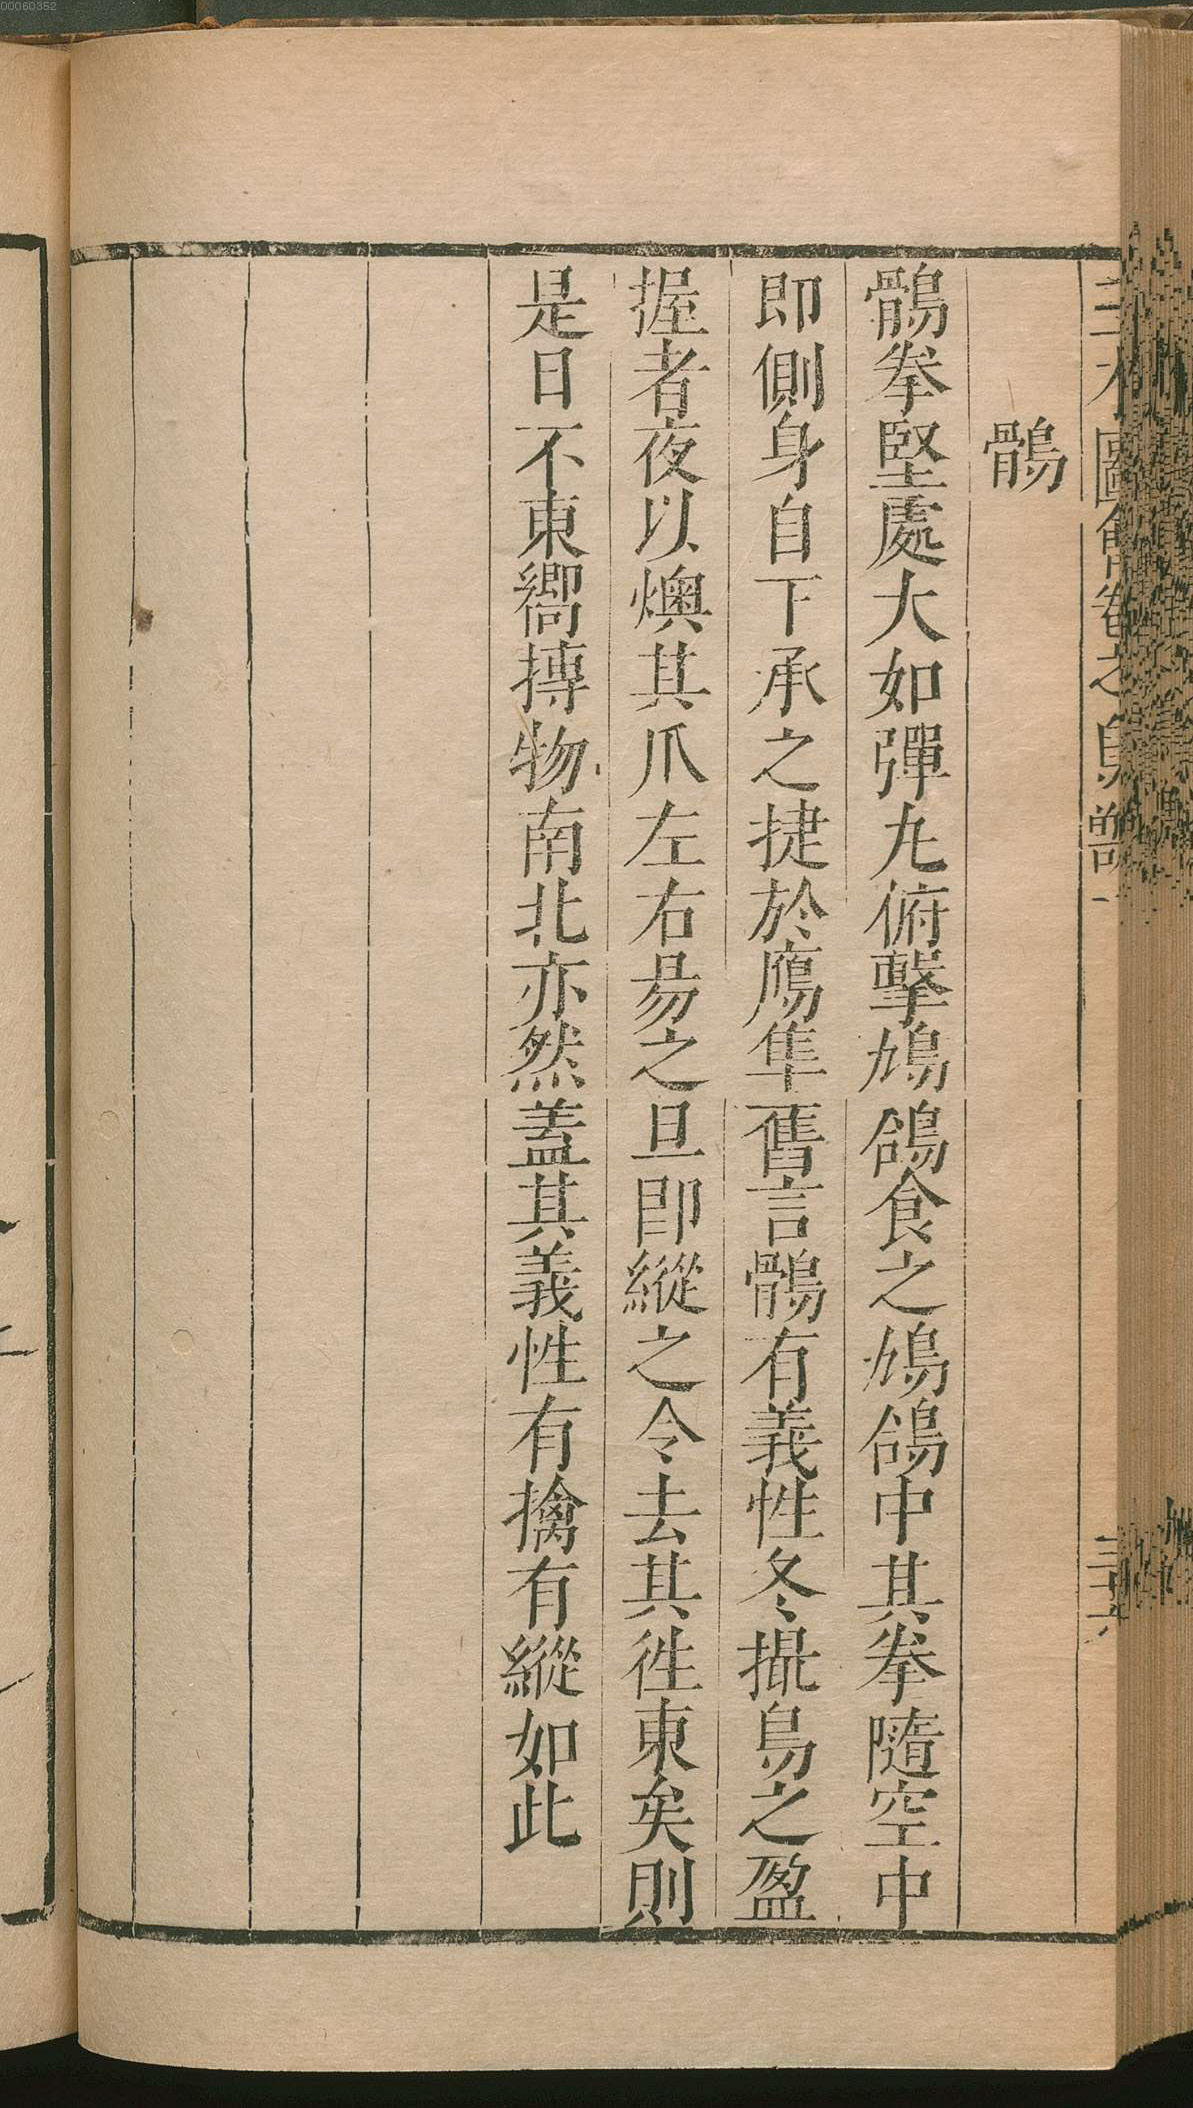 三才圖會卷之鳥部一
三十六
鶻
鶻拳堅處大如彈丸俯擊鳩鴿食之鳩鴿中其拳隨空中
即側身自下承之捷於鷹隼舊言鶻有義性冬撮鳥之盈
握者夜以燠其爪左右易之旦卽縱之令去其徃東矣則
是日不東嚮摶物南北亦然蓋其義性有擒有縱如此
00060352